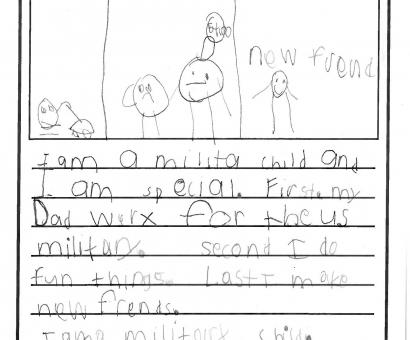 new frend
I am a milita child and
I am special. First. my
Dad werx for the us
military. second I do
fun things. Last I make
new frends.
I am a military child.